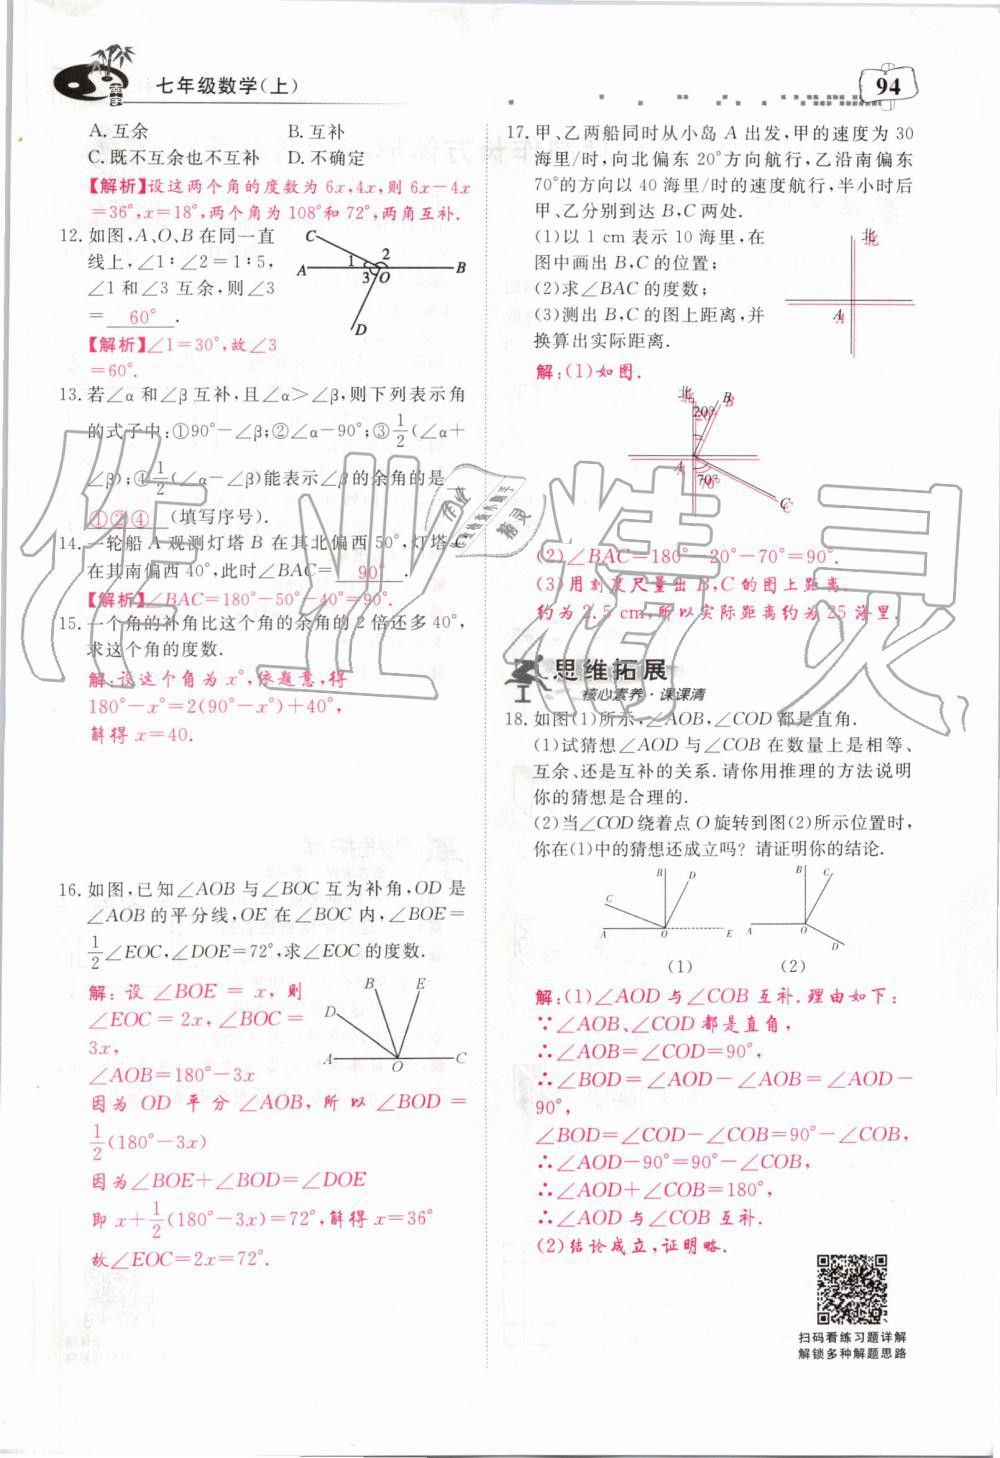 七年级数学(上)
94
A. 互余 B. 互补
C. 既不互余也不互补 D. 不确定
【解析】设这两个角的度数为 6x,4x,则 6x-4x
=36°,x=18°,两个角为 108°和 72°,两角互补.
12. 如图,A、O、B 在同一直
线上,∠1∶∠2=1∶5,
∠1 和∠3 互余,则∠3
= 60° .
【解析】∠1=30°,故∠3
=60°.
C
1
2
A
3
O
B
D
13. 若∠α 和∠β 互补,且∠α>∠β,则下列表示角
的式子中:①90°-∠β;②∠α-90°;③1/2(∠α+
∠β);④1/2(∠α-∠β)能表示∠β 的余角的是
①②④ (填写序号).
14. 一轮船 A 观测灯塔 B 在其北偏西 50°,灯塔 C
在其南偏西 40°,此时∠BAC= 90° .
【解析】∠BAC=180°-50°-40°=90°.
15. 一个角的补角比这个角的余角的 2 倍还多 40°,
求这个角的度数.
解:设这个角为 x°,依题意,得
180°-x°=2(90°-x°)+40°,
解得 x=40.
16. 如图,已知∠AOB 与∠BOC 互为补角,OD 是
∠AOB 的平分线,OE 在∠BOC 内,∠BOE=
1/2∠EOC,∠DOE=72°,求∠EOC 的度数.
解:设 ∠BOE = x,则
∠EOC = 2x,∠BOC =
3x,
∠AOB=180°-3x
B E
D
A
O
C
因为 OD 平分 ∠AOB,所以 ∠BOD =
1/2(180°-3x)
因为∠BOE+∠BOD=∠DOE
即 x+1/2(180°-3x)=72°,解得 x=36°
故∠EOC=2x=72°.
17. 甲、乙两船同时从小岛 A 出发,甲的速度为 30
海里/时,向北偏东 20°方向航行,乙沿南偏东
70°的方向以 40 海里/时的速度航行,半小时后
甲、乙分别到达 B,C 两处.
(1)以 1 cm 表示 10 海里,在
图中画出 B,C 的位置;
(2)求∠BAC 的度数;
(3)测出 B,C 的图上距离,并
换算出实际距离.
北
A
解:(1)如图.
北
B
20°
A
70°
C
(2)∠BAC=180°-20°-70°=90°.
(3)用刻度尺量出 B,C 的图上距离.
约为 2.5 cm,所以实际距离约为 25 海里.
思维拓展
核心素养·课课清
18. 如图(1)所示,∠AOB,∠COD 都是直角.
(1)试猜想∠AOD 与∠COB 在数量上是相等、
互余、还是互补的关系. 请你用推理的方法说明
你的猜想是合理的.
(2)当∠COD 绕着点 O 旋转到图(2)所示位置时,
你在(1)中的猜想还成立吗? 请证明你的结论.
B D
C
A O E
(1)
B C
A O
D
(2)
解:(1)∠AOD 与∠COB 互补. 理由如下:
∵∠AOB、∠COD 都是直角,
∴∠AOB=∠COD=90°,
∴∠BOD=∠AOD-∠AOB=∠AOD-
90°,
∠BOD=∠COD-∠COB=90°-∠COB,
∴∠AOD-90°=90°-∠COB,
∴∠AOD+∠COB=180°,
∴∠AOD 与∠COB 互补.
(2)结论成立,证明略.
扫码看练习题详解
解锁多种解题思路
作业精灵